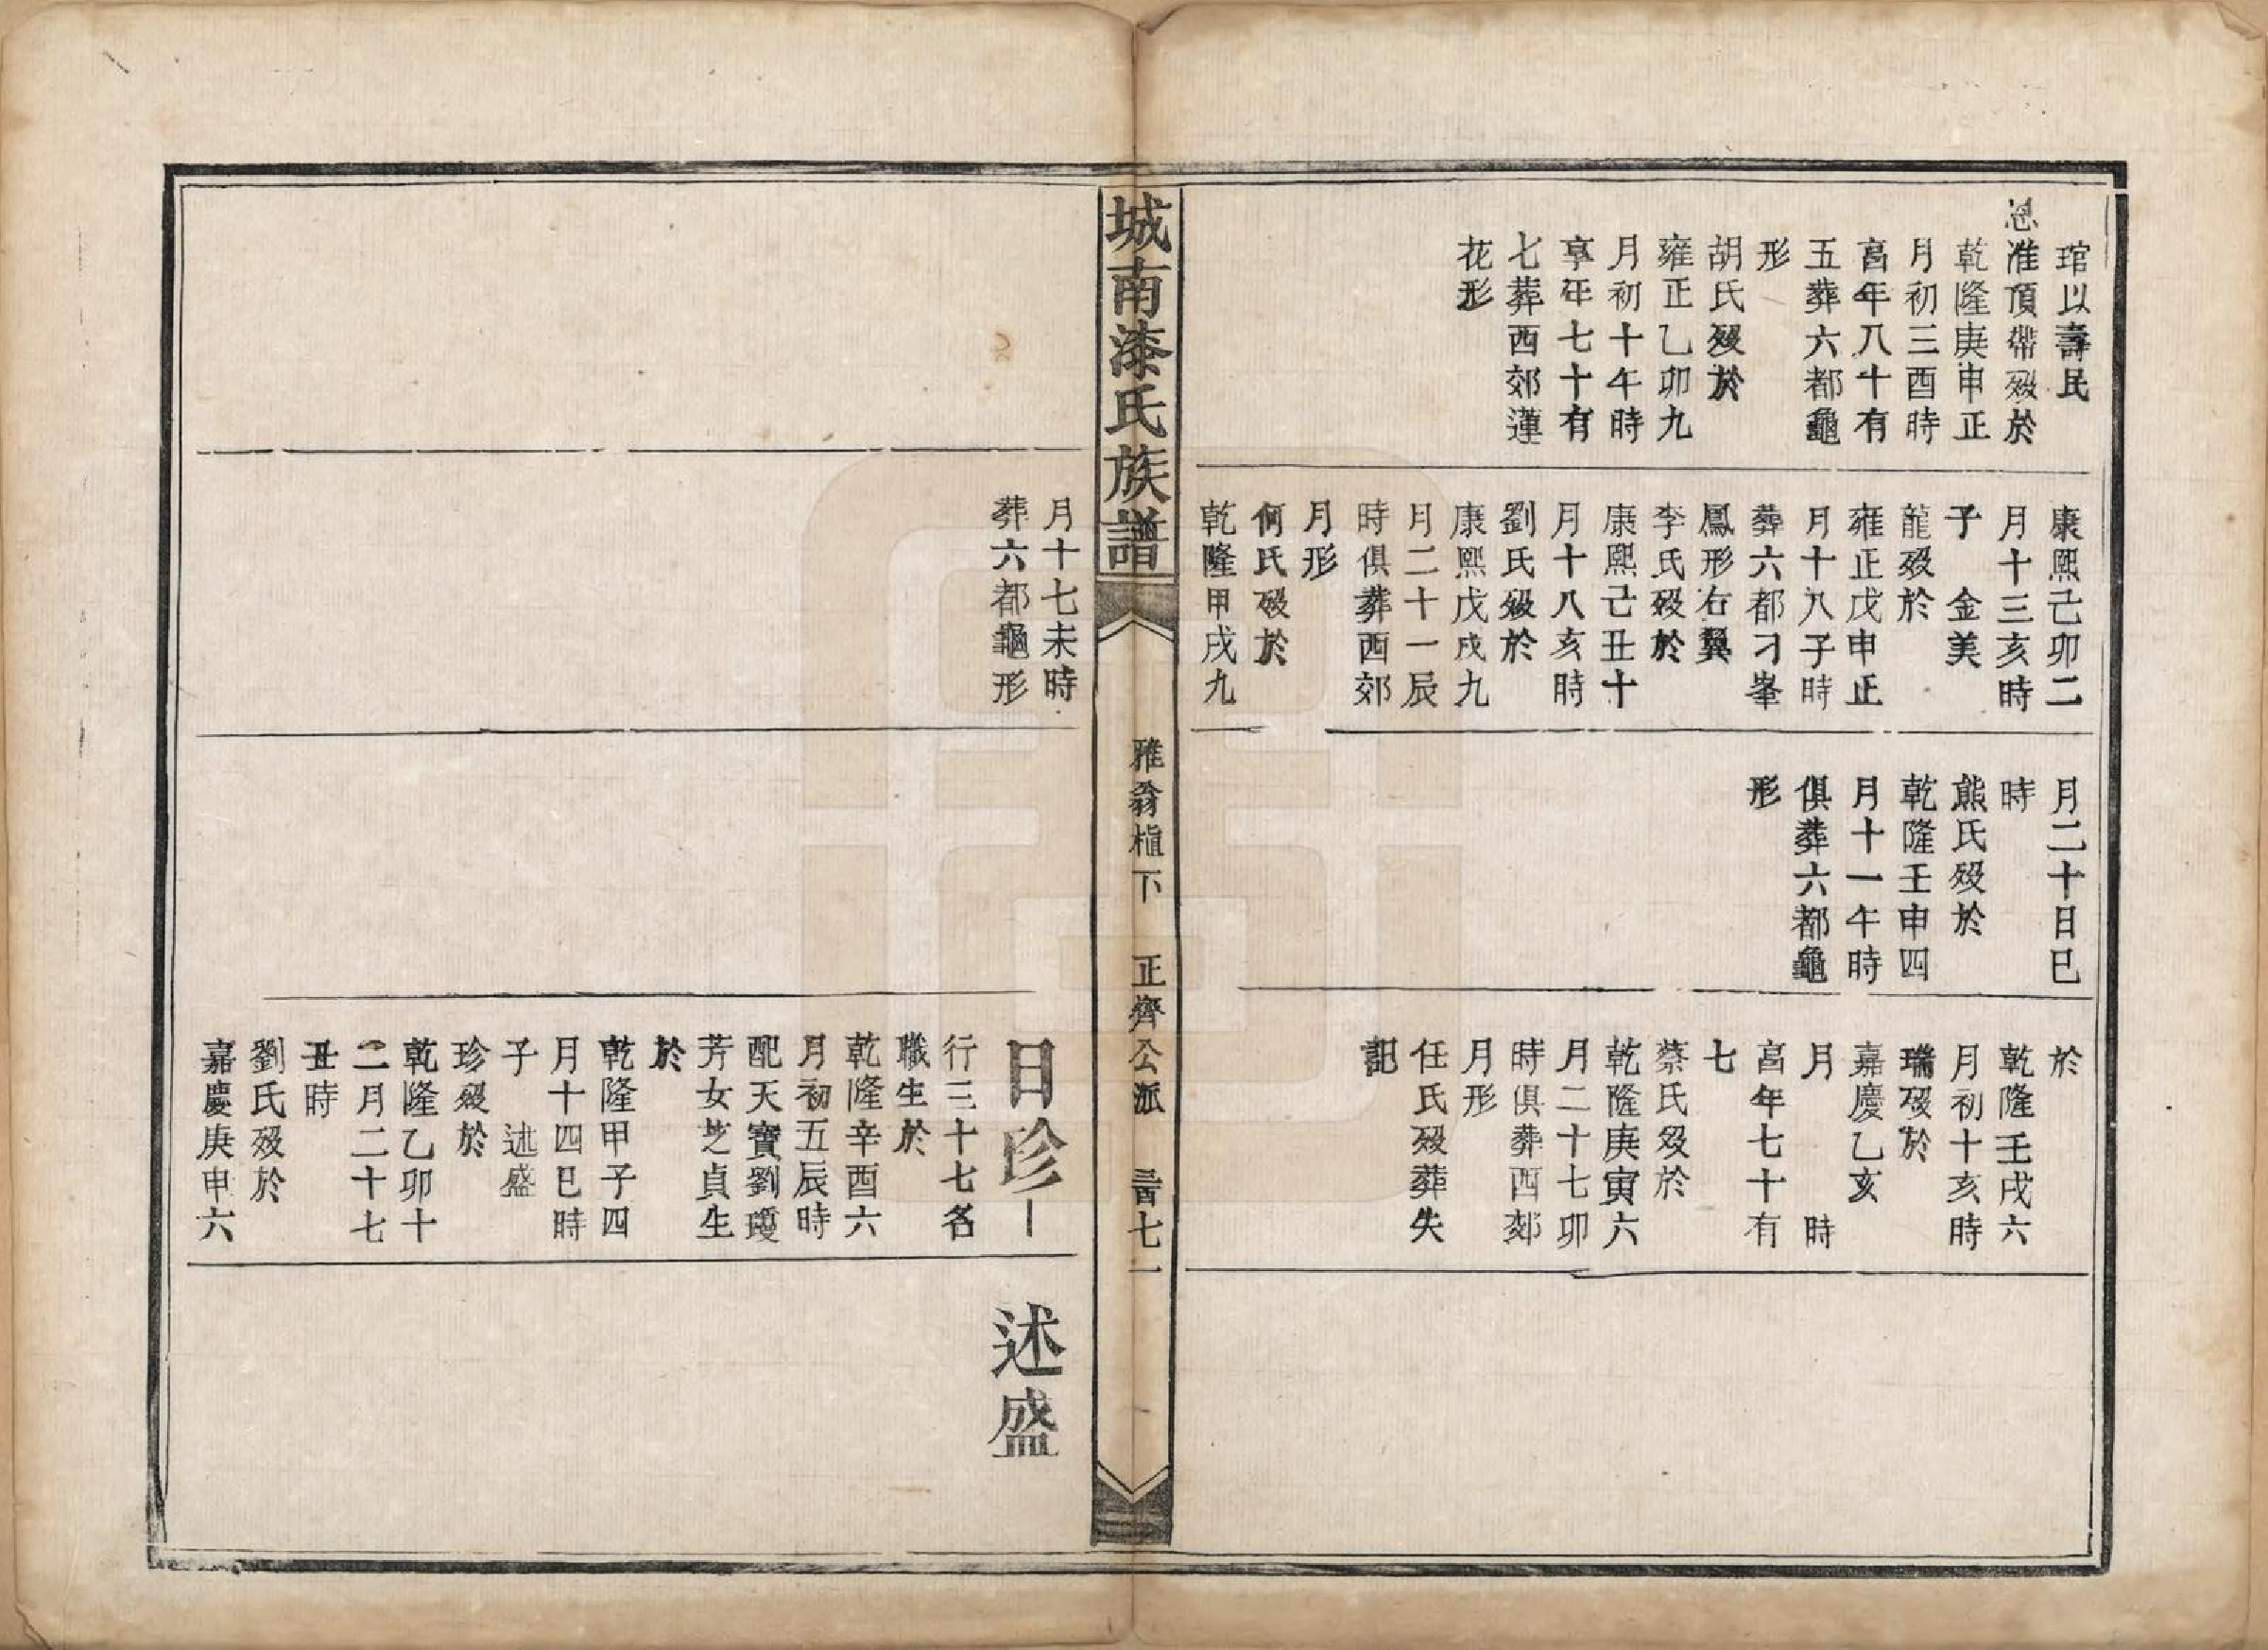 琯以壽民
恩准頂帶殁於
乾隆庚申正
月初三酉時
亯年八十有
五葬六都龜
形
胡氏殁於
雍正乙卯九
月初十午時
享年七十有
七葬西郊蓮
花形
康熙己卯二
月十三亥時
子　金美
龍殁於
雍正戊申正
月十八子時
葬六都刁峯
鳳形右翼
李氏殁於
康熙己丑十
月十八亥時
劉氏殁於
康熙戊戌九
月二十一辰
時俱葬西郊
月形
何氏殁於
乾隆甲戌九
月二十日巳
時
熊氏殁於
乾隆壬申四
月十一午時
俱葬六都龜
形
於
乾隆壬戌六
月初十亥時
瑞殁於
嘉慶乙亥
月　時
亯年七十有
七
蔡氏殁於
乾隆庚寅六
月二十七卯
時俱葬西郊
月形
任氏殁葬失
記
城南漆氏族譜
雅翁植下　正齊公派　七一
月十七未時
葬六都龜形
日珍
行三十七名
職生於
乾隆辛酉六
月初五辰時
配天寶劉瓊
芳女芝貞生
於
乾隆甲子四
月十四巳時
子　述盛
珍殁於
乾隆乙卯十
二月二十七
丑時
劉氏殁於
嘉慶庚申六
述盛